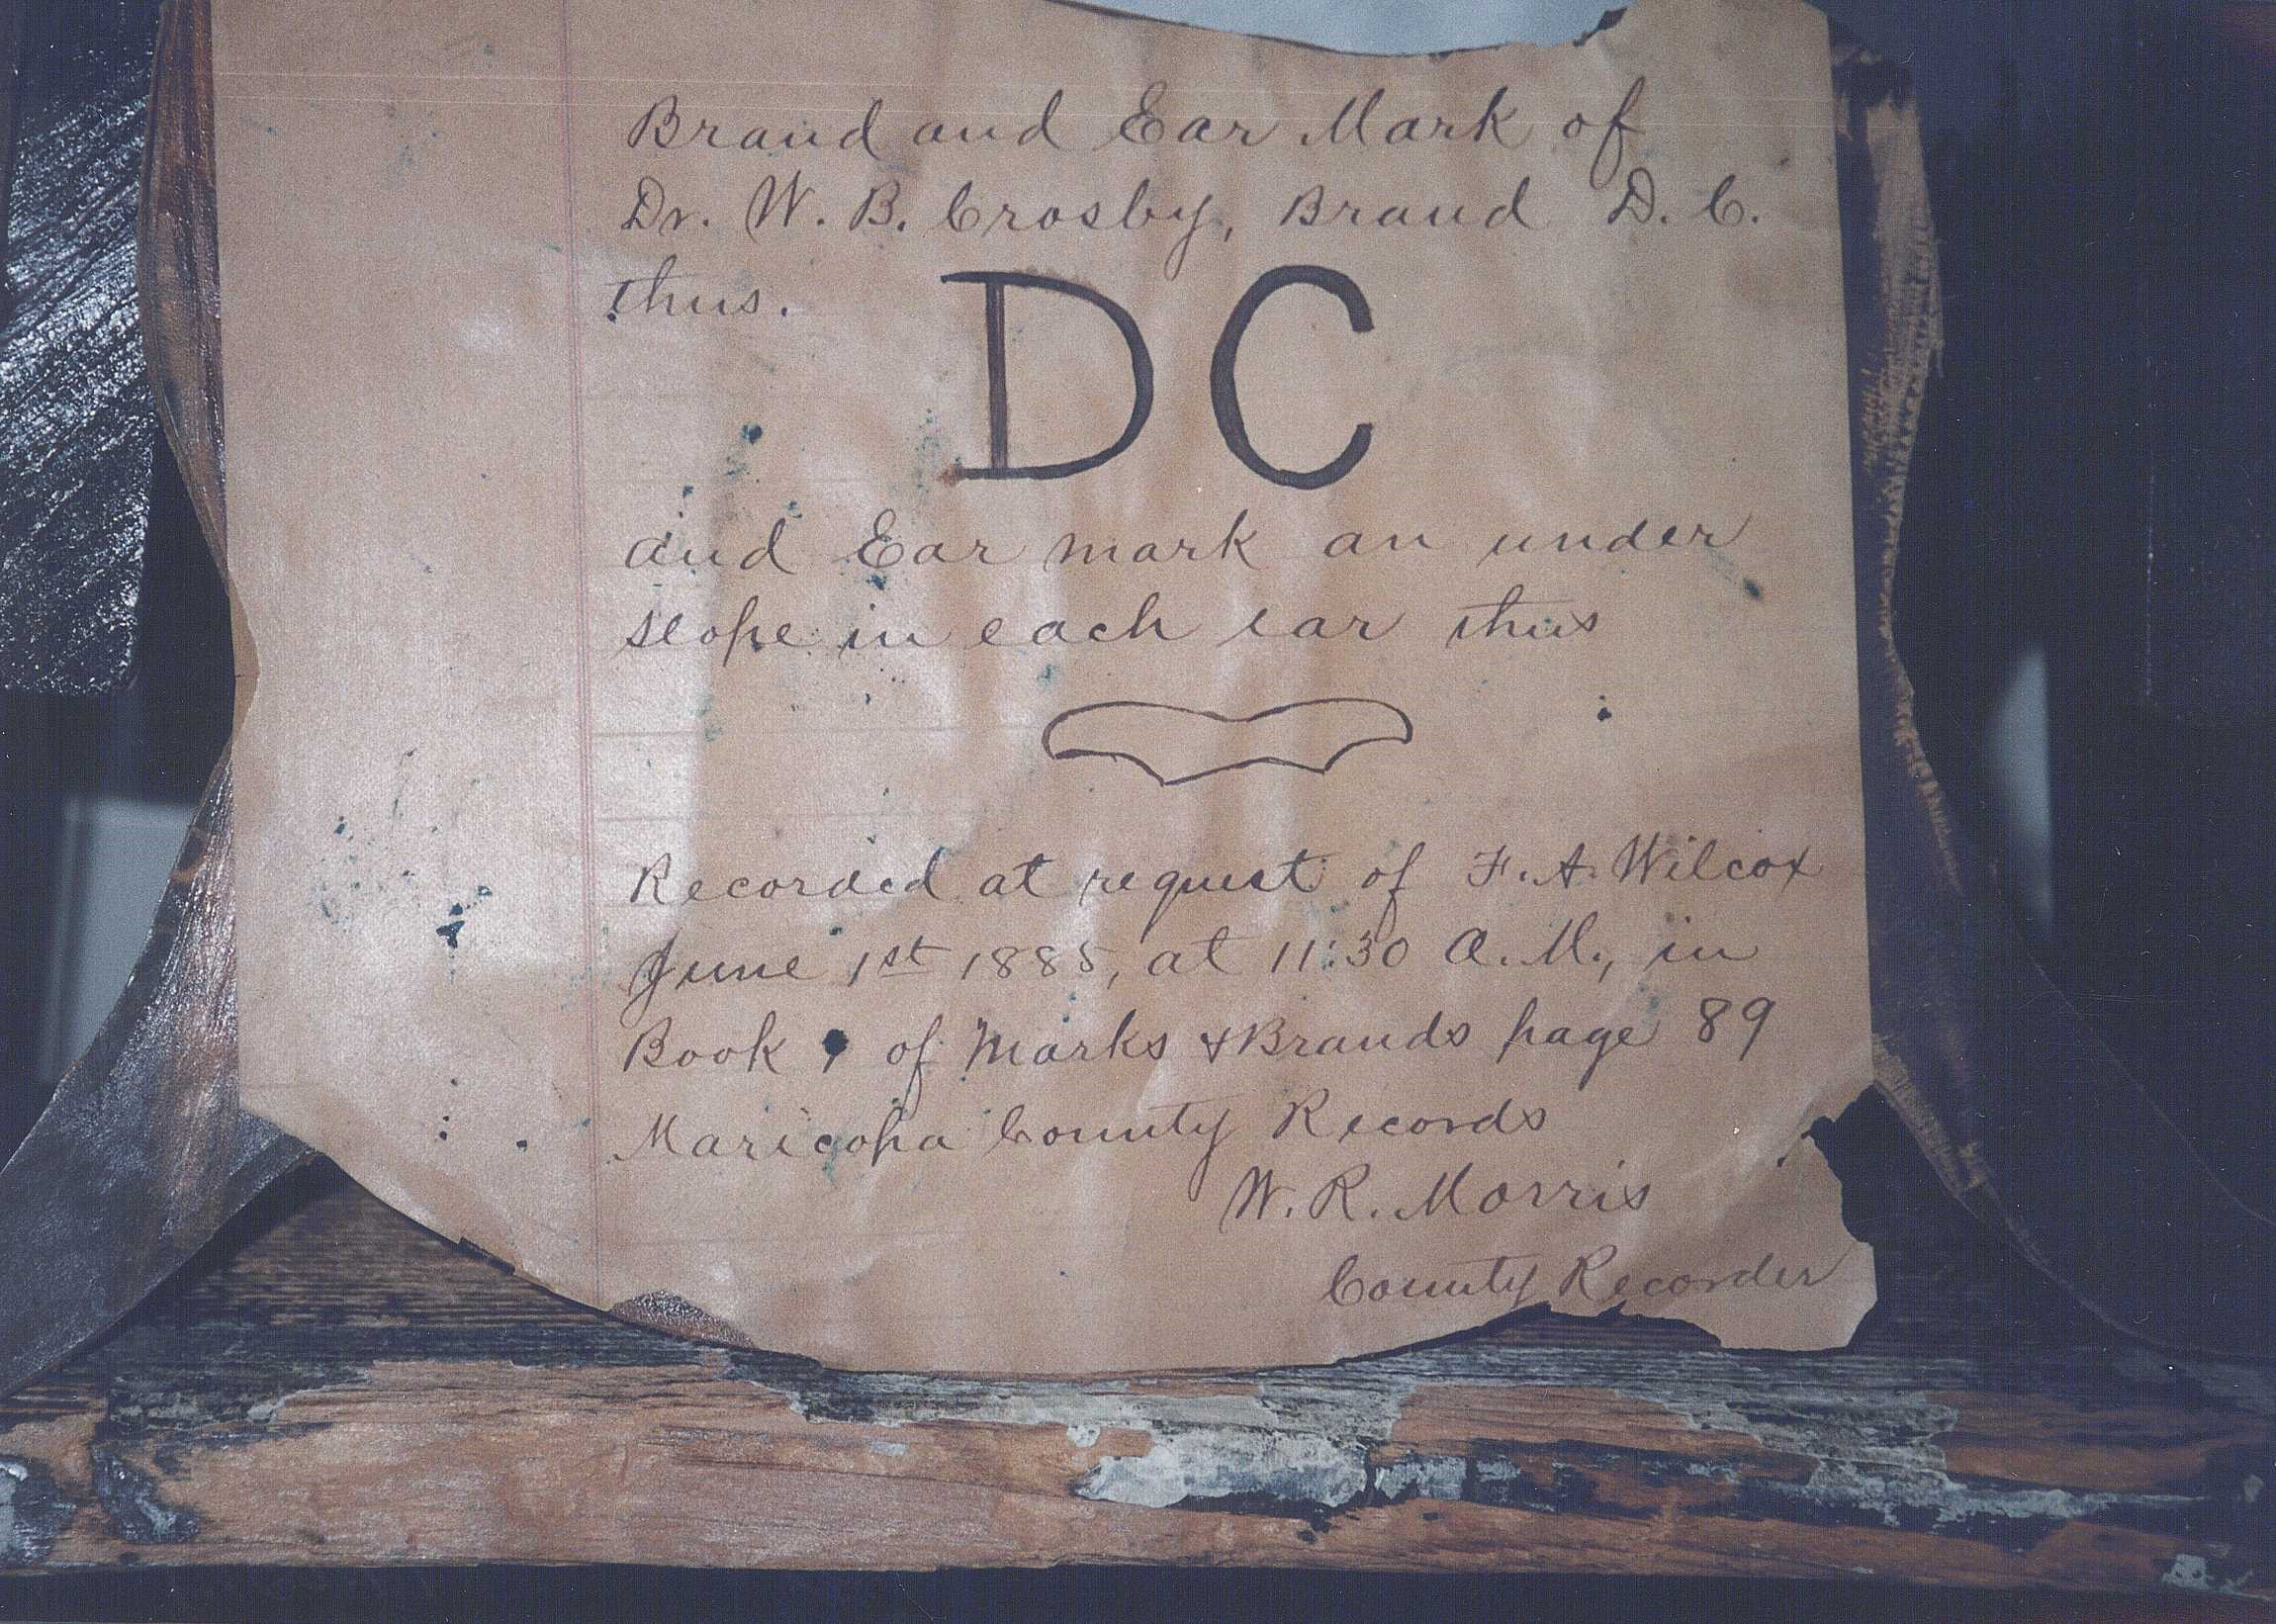 Brand and Ear Mark of
Dr. W. B. Crosby, Brand D. C.
thus. DC
and Ear mark an under
slope in each ear thus
Recorded at request of F. A. Wilcox
June 1st 1885, at 11:30 A. M., in
Book of Marks & Brands page 89
Maricopa County Records
W. R. Morris
County Recorder